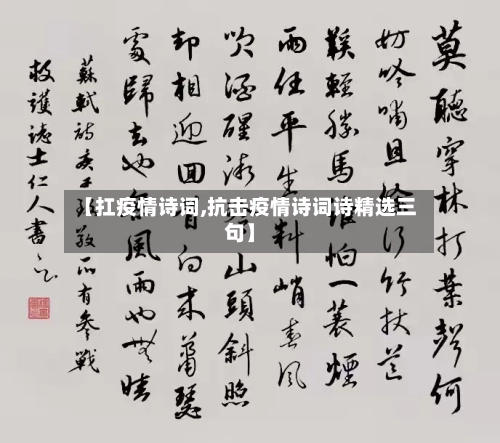 莫聽穿林打葉聲何
妨吟嘯且徐行竹杖芒
鞋輕勝馬誰怕一蓑煙
雨任平生料峭春風
吹酒醒微冷山頭斜照
却相迎回首向來蕭瑟
處歸去也無風雨也無晴
蘇軾詩庚子致敬所有參戰
救護誌士仁人書
【扛疫情诗词,抗击疫情诗词诗精选三
句】